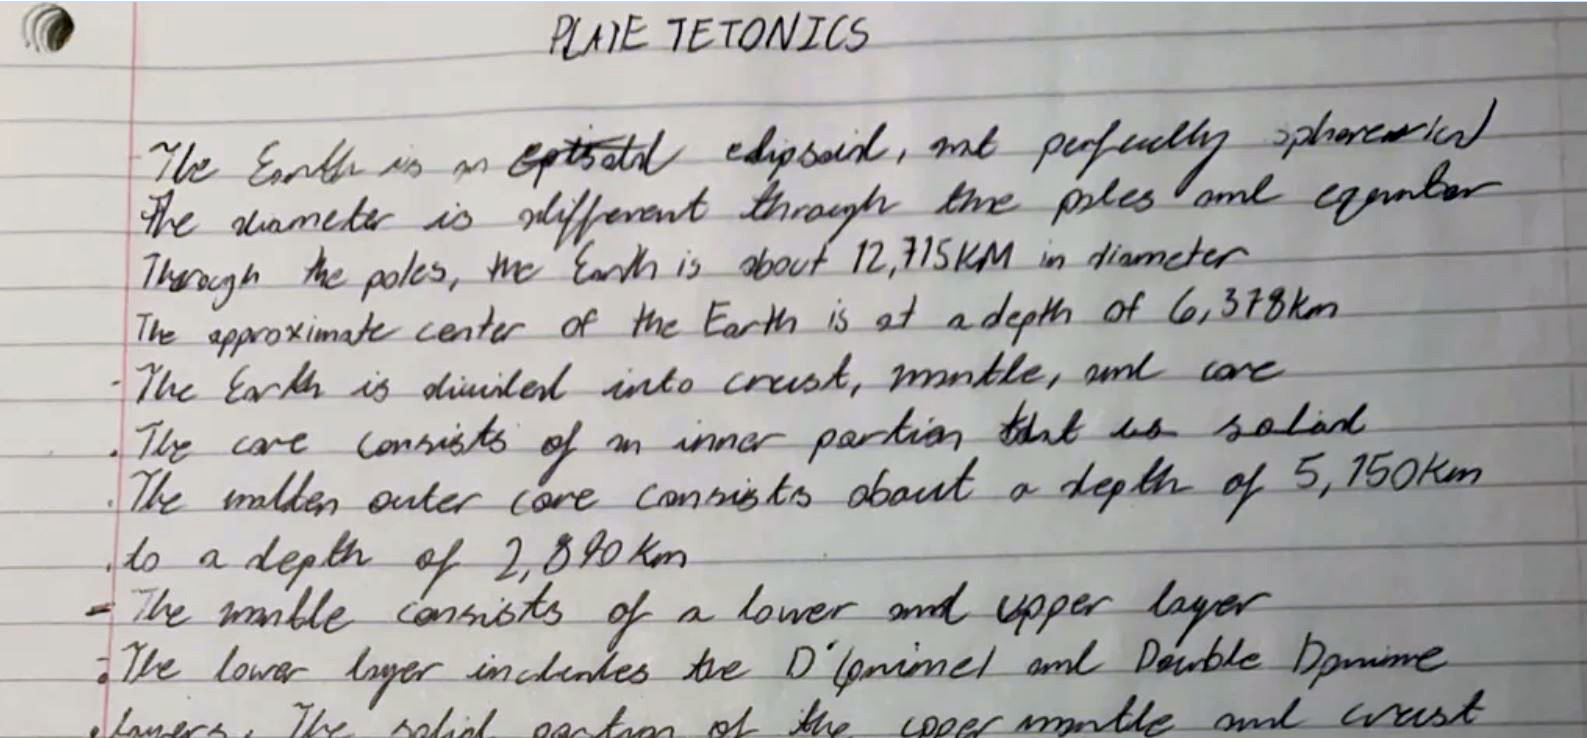 PLATE TETONICS
The Earth is an elipsoid, not perfectly
The diameter is different through the poles and equator
Through the poles, the Earth is about 12,715KM in diameter
The approximate center of the Earth is at a depth of 6,378km
- The Earth is divided into crust, mantle, and core
. The core consists of an inner portion that is solid
. The molten outer core consists about a depth of 5,150km
. to a depth of 2,890km
- The mantle consists of a lower and upper layer
: The lower layer includes the D'(prime) and Double Dprime
. layers. The solid portion of the upper mantle and crust